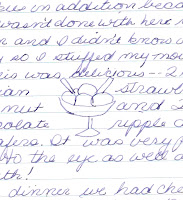 in addition beca
wasn't done with here
and I didn't know
so I stuffed my mo
was delicious -- 2
strawb
nut and 2
colate ripple
afers. It was very p
to the eye as well a
th!
dinner we had che